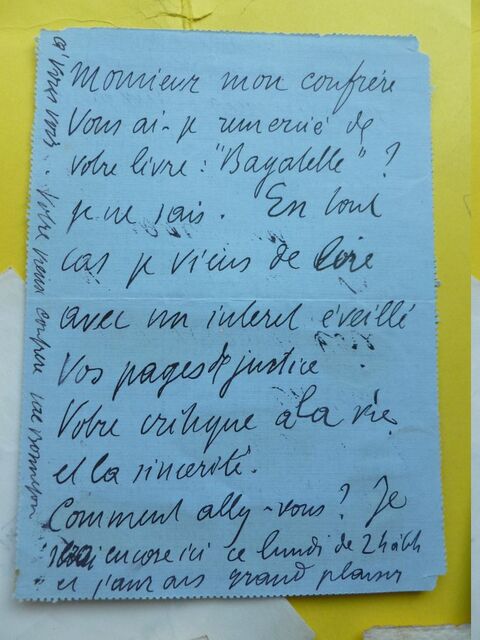 Monsieur mon confrère
Vous ai-je remercié de
votre livre : "Bagatelle" ?
je ne sais. En tout
cas je viens de lire
avec un interet éveillé
Vos pages de justice
Votre critique a la vie
et la sincerité.
Comment allez-vous ? Je
serai encore ici ce lundi de 2h à 6h
et j'aurais grand plaisir
à vous voir. Votre vieux confrere